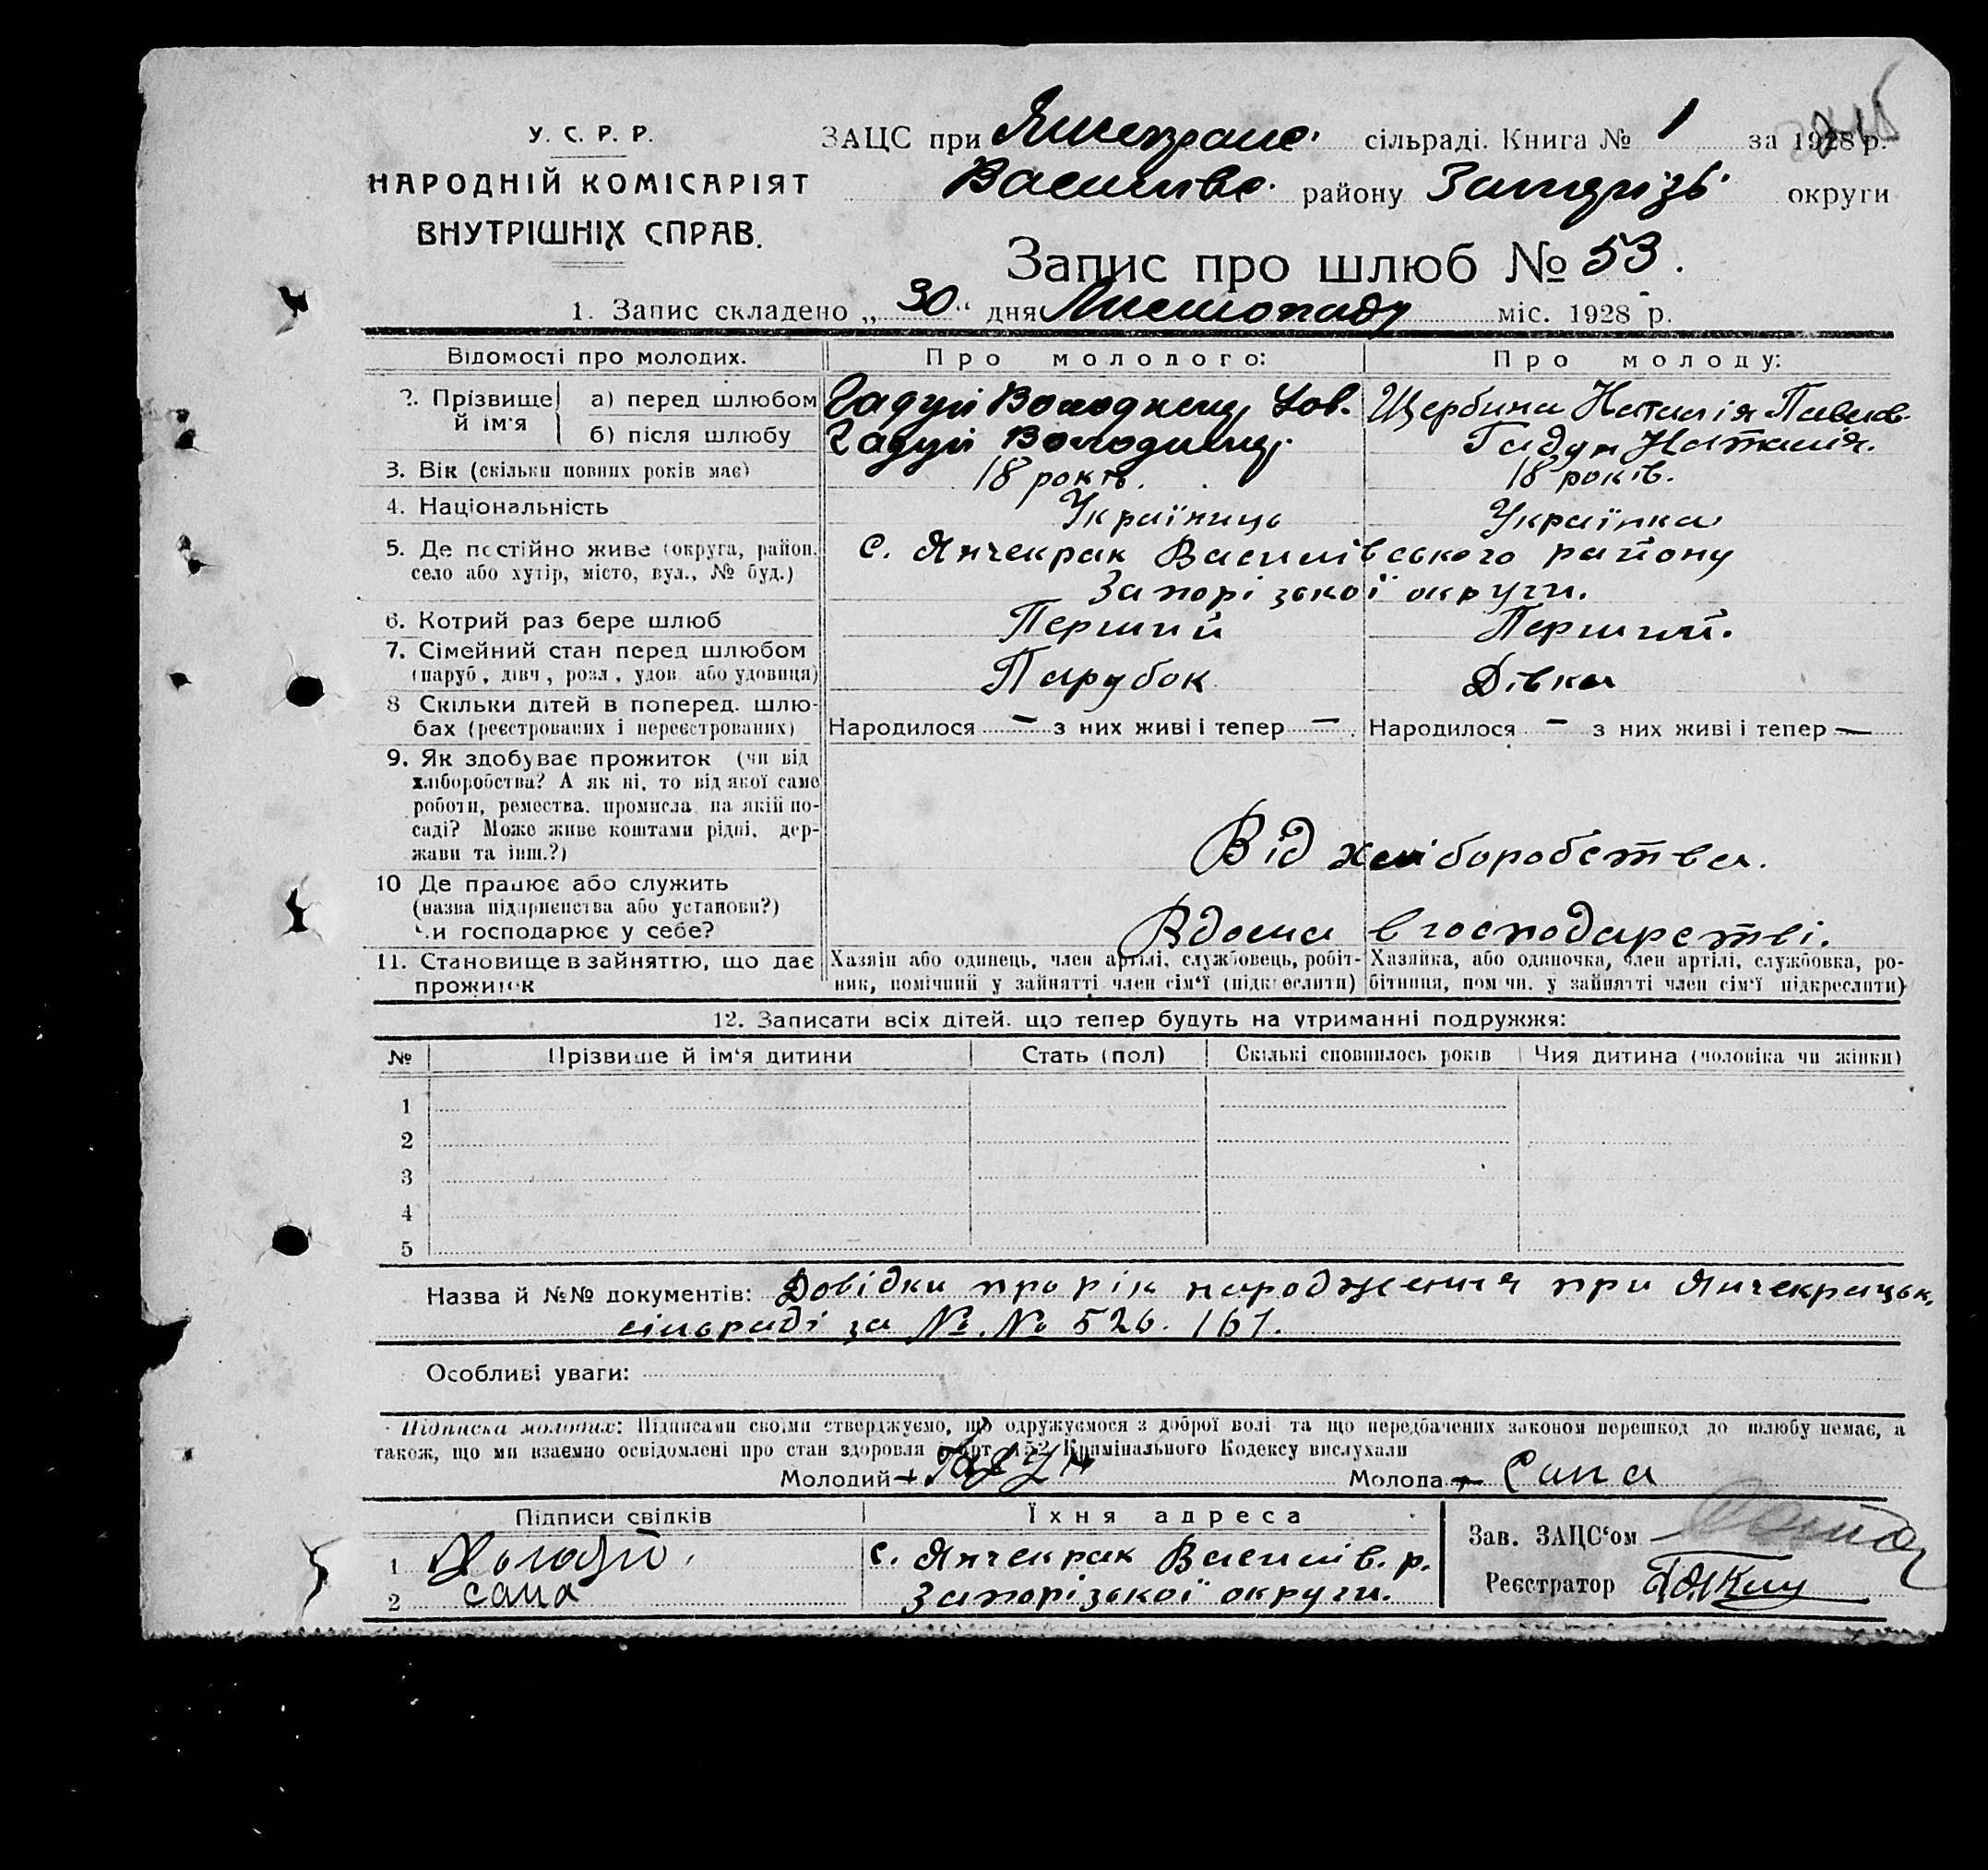 У. С. Р. Р.
НАРОДНІЙ КОМІСАРІЯТ
ВНУТРІШНІХ СПРАВ.
ЗАЦС при Янчекрацк. сільраді. Книга № 1 за 1928 р.
Василівс. району Запорізь. округи
Запис про шлюб № 53.
1. Запис складено „30“ дня Листопаду міс. 1928 р.
Відомості про молодих. Про молодого: Про молоду:
2. Прізвище й ім'я
а) перед шлюбом Гадун Володимир Щербина Наталія Павлов.
б) після шлюбу Гадун Володимир. Гадун Наталія.
3. Вік (скільки повних років має) 18 років. 18 років.
4. Національність Українець Українка
5. Де постійно живе (округа, район, с. Янчекрак Василівського району
село або хутір, місто, вул., № буд.) Запорізької округи.
6. Котрий раз бере шлюб Перший Перший.
7. Сімейний стан перед шлюбом
(паруб, дівч, розл, удов. або удовиця) Парубок Дівка
8 Скільки дітей в поперед. шлю-
бах (реєстрованих і нереєстрованих) Народилося — з них живі і тепер — . Народилося — з них живі і тепер —
9. Як здобуває прожиток (чи від
хліборобства? А як ні, то від якої саме
роботи, ремества, промисла, на якій по-
саді? Може живе коштами рідні, дер-
жави та інш.?) Від хліборобства.
10 Де працює або служить
(назва підприємства або установи?)
Чи господарює у себе? Вдома в господарстві.
11. Становище в зайняттю, що дає прожиток
Хазяїн або одинець, член артілі, службовець, робіт-
ник, помічний у зайнятті член сім'ї (підкреслити)
Хазяйка, або одиночка, член артілі, службовка, ро-
бітниця, помічн. у зайнятті член сім'ї підкреслити)
12. Записати всіх дітей, що тепер будуть на утриманні подружжя:
№ Прізвище й ім'я дитини Стать (пол) Скількі сповнилось років Чия дитина (чоловіка чи жінки)
1
2
3
4
5
Назва й №№ документів: Довідки про рік народження при Янчекрацьк.
сільраді за №.№ 526. 161.
Особливі уваги:
Підписка молодих: Підписами своїми стверджуємо, що одружуємося з доброї волі та що передбачених законом перешкод до шлюбу немає, а
також, що ми взаємно освідомлені про стан здоровля і арт. 152 Кримінального Кодексу вислухали
Молодий Гадун Молода Сана
Підписи свідків Їхня адреса
1 с. Янчекрак Василів. р.
2 сама Запорізької округи.
Зав. ЗАЦС'ом
Реєстратор